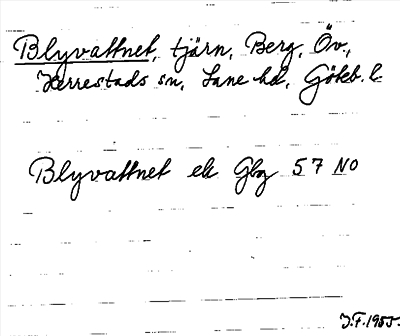 Blyvattnet, tjärn, Berg, Öv.,
Herrestads sn, Lane hd, Göteb. l.
Blyvattnet ek Gbg 57 NO
J.F. 1955.